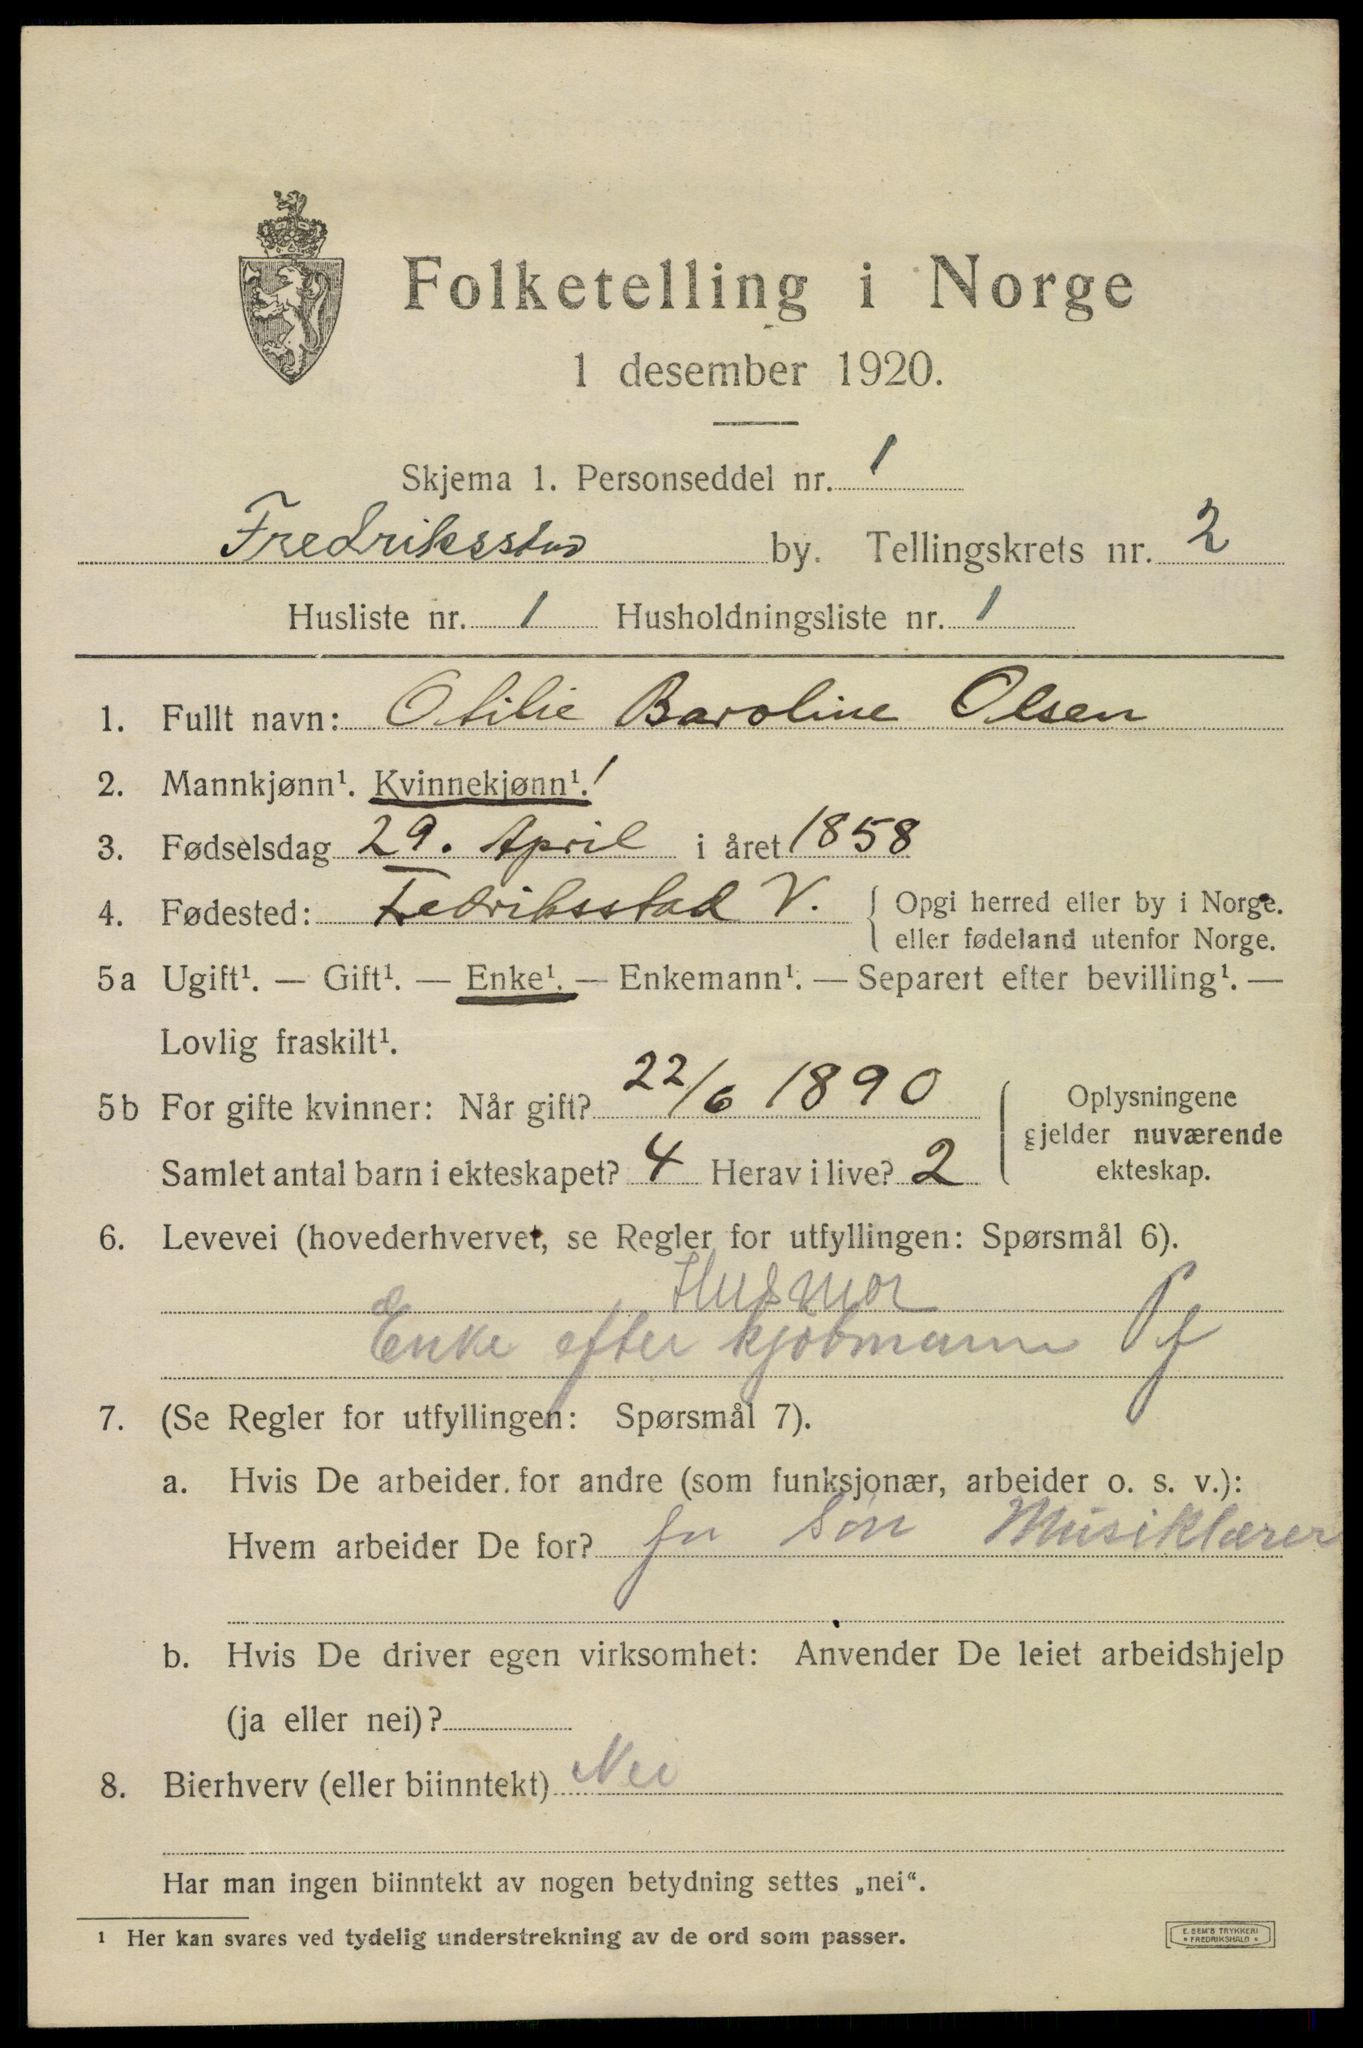 Folketelling i Norge
1 desember 1920.
Skjema 1. Personseddel nr. 1
Fredriksstad by. Tellingskrets nr. 2
Husliste nr. 1 Husholdningsliste nr. 1
1. Fullt navn: Otilie Baroline Olsen
2. Mannkjønn¹. Kvinnekjønn¹. /
3. Fødselsdag 29. April i året 1858
4. Fødested: Fredriksstad V. { Opgi herred eller by i Norge.
eller fødeland utenfor Norge.
5a Ugift¹. — Gift¹. — Enke¹. — Enkemann¹. — Separert efter bevilling¹. —
Lovlig fraskilt¹.
5b For gifte kvinner: Når gift? 22/6 1890
Samlet antal barn i ekteskapet? 4 Herav i live? 2
Oplysningene
gjelder nuværende
ekteskap.
6. Levevei (hovederhvervet, se Regler for utfyllingen: Spørsmål 6).
Husmor
Enke efter kjøbmann Pf
7. (Se Regler for utfyllingen: Spørsmål 7).
a. Hvis De arbeider for andre (som funksjonær, arbeider o. s. v.):
Hvem arbeider De for? Søn Musiklærer
b. Hvis De driver egen virksomhet: Anvender De leiet arbeidshjelp
(ja eller nei)?
8. Bierhverv (eller biinntekt) Nei
Har man ingen biinntekt av nogen betydning settes „nei“.
¹ Her kan svares ved tydelig understrekning av de ord som passer.
E. SEM'S TRYKKERI
* FREDRIKSHALD *